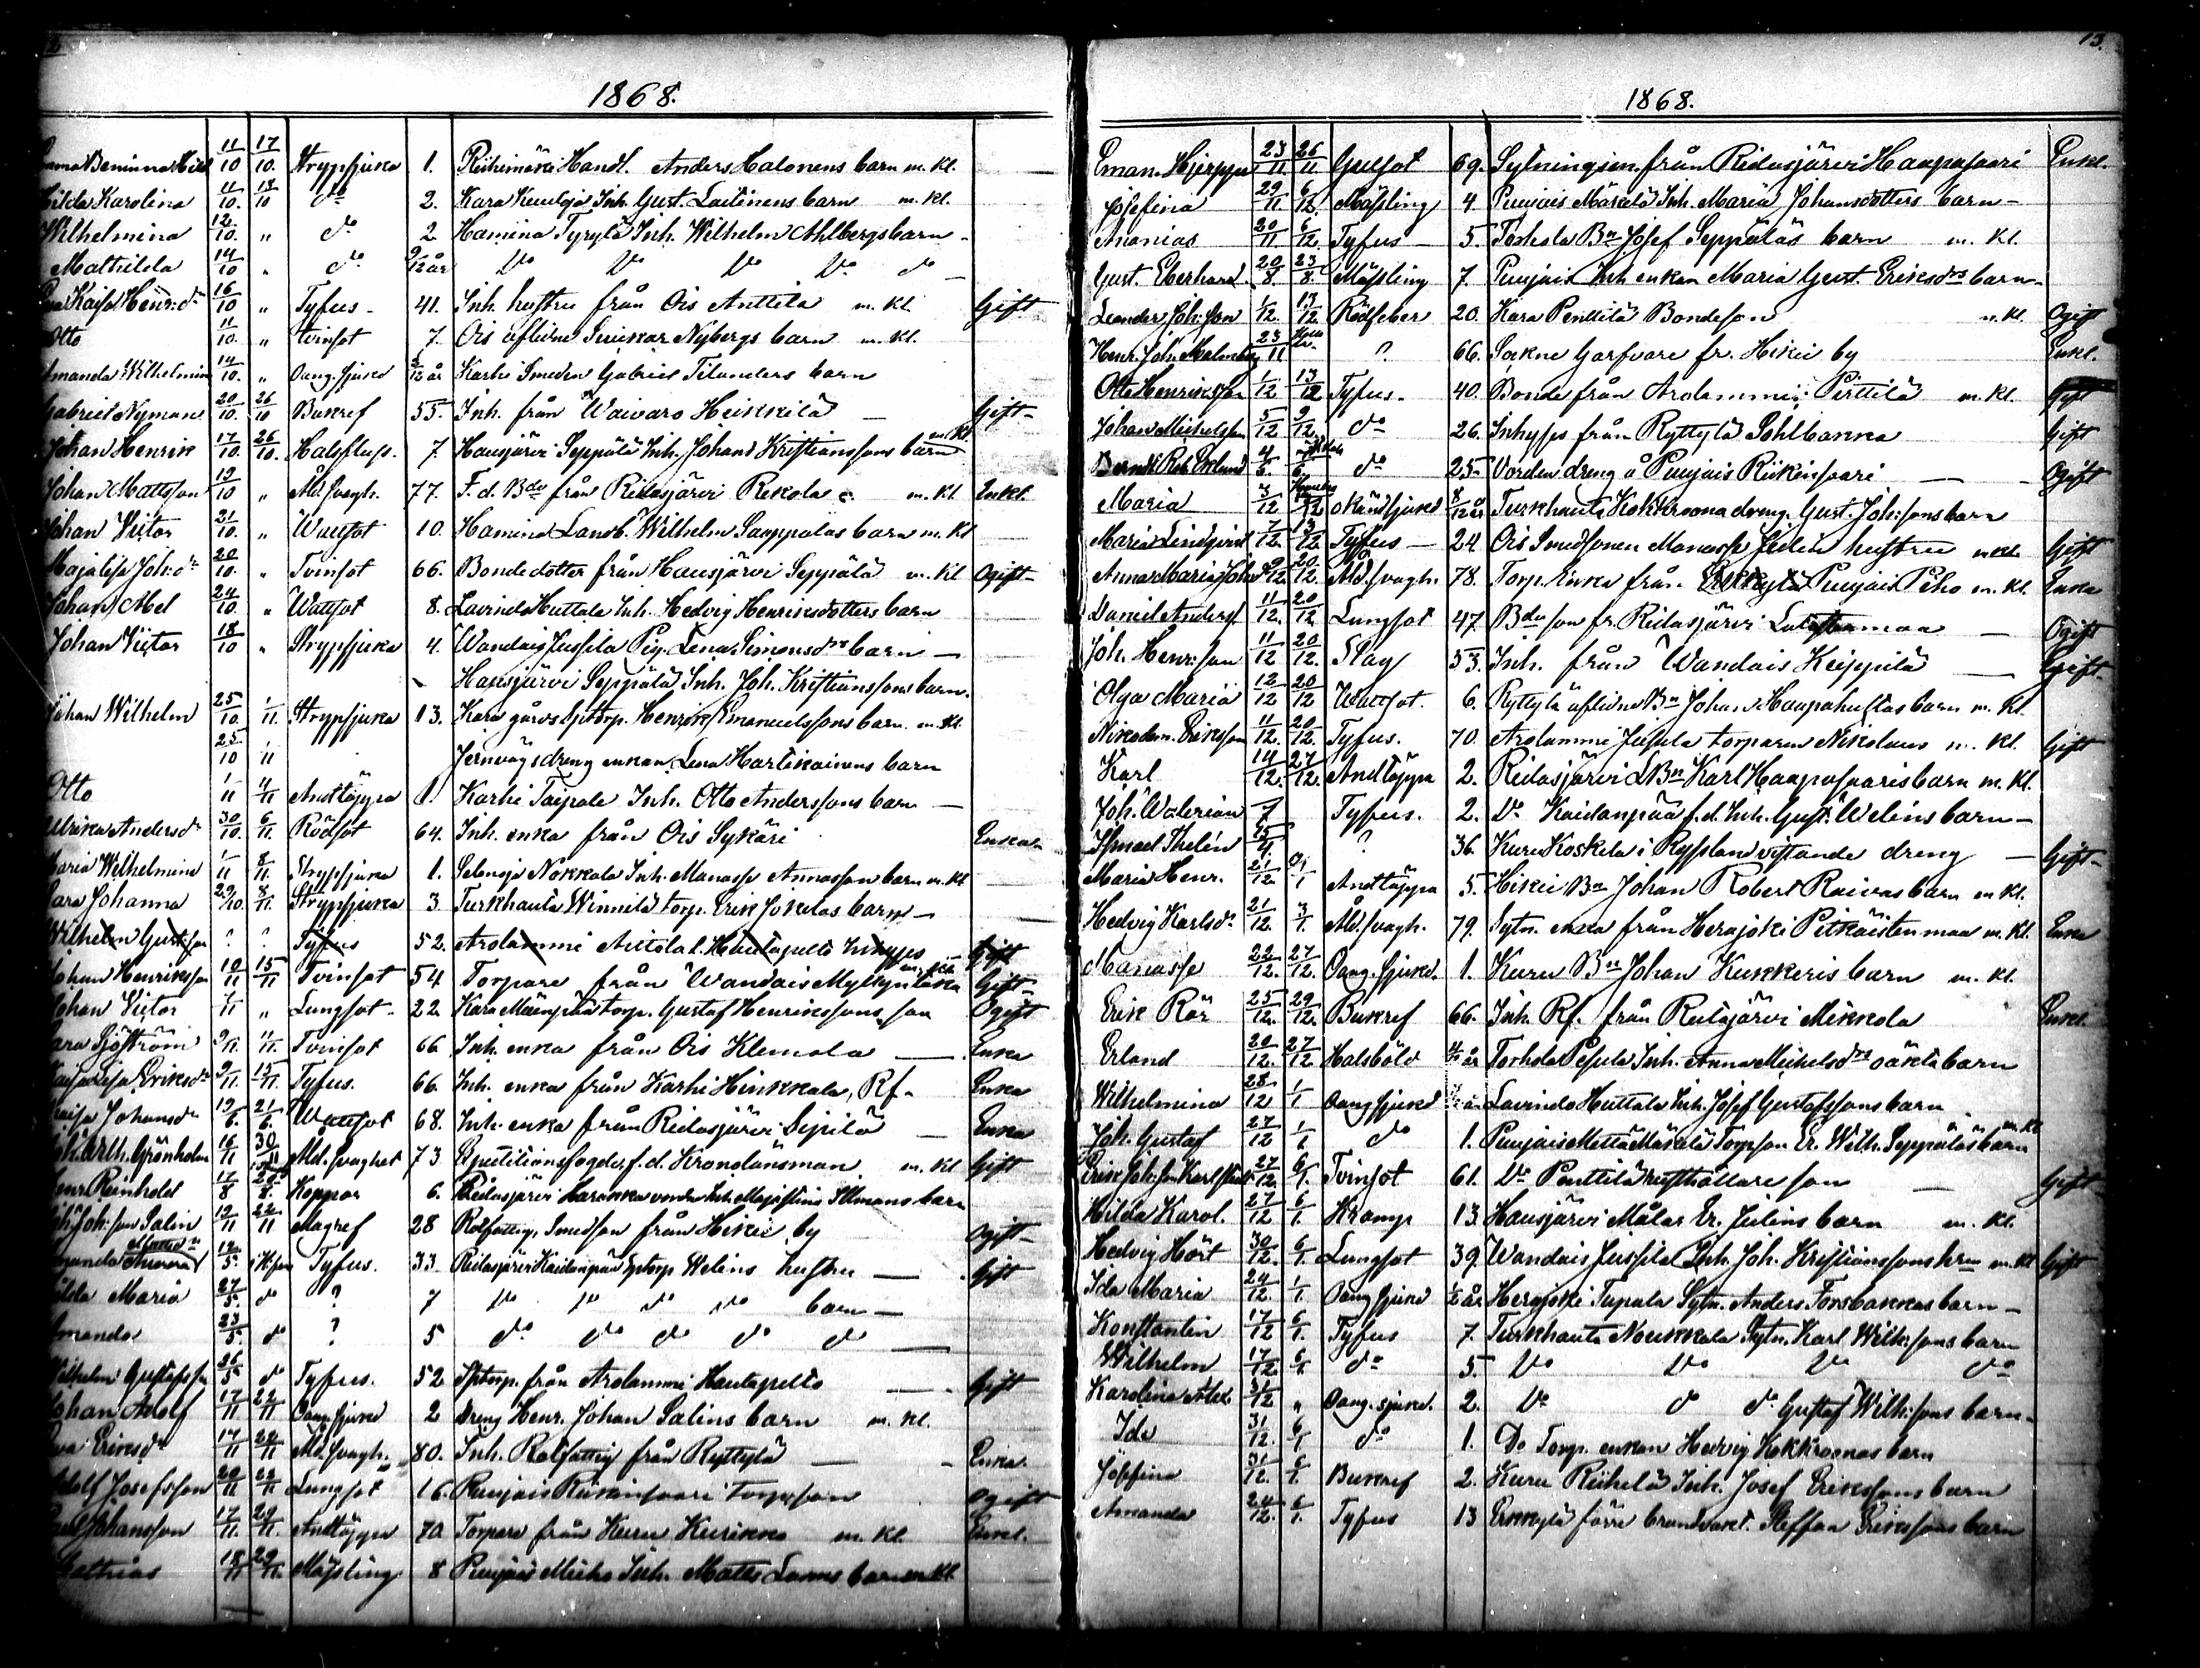 1868.
11/10 17/10. Strypsjuka 1. Riihimäki Handl. Anders Halonens barn m. Kl.
Hilda Karolina 11/10. 18/10 do 2. Kara Inh. Gust. Laitinens barn m. Kl.
Wilhelmina 12./10. " do 2 Hamina Tyrylä Inh. Wilhelm Ahlbergs barn
Mathilda 14/10 " do 9/12 år Do Do Do Do do
Kaisa Henr:dr 16/10 " Tyfus 41. Inh. hustru från Ois Anttila m. Kl. Gift
Otto 11/10. " Tvinsot 7. Ois aflidne Nybergs barn m. Kl.
Amanda Wilhelmina 14/10. " Oang. sjukd år Karhi Smeden Gabriel Tilanders barn
Gabriel Nyman 20/10. 26/10 Bukref 55. Inh. från Waivaro Heikkilä Gift
Johan Henrik 17/10. 26/10. Halsfluss. 7. Hausjärvi Seppälä Inh. Johan Kristianssons barn m Kl
Johan Mattsson 19/10 " Åld. svagh. 77. F. d. Bde från Ridasjärvi Rekola m. Kl Enkl.
Johan Victor 21/10. " Wattsot 10. Hamina Landb. Wilhelm Sauppalas barn m. Kl
Majalisa Joh:dr 20/10. " Tvinsot 66. Bondedotter från Hausjärvi Seppälä m. Kl Ogift
Johan Abel 24/10. " Wattsot 8. Lavinto Huttala Inh. Hedvig Henriksdotters barn
Johan Victor 18/10 " Strypsjuka 4. Wandais Jussila Pig. Lena Simonsdrs barn
Hausjärvi Seppälä Inh. Joh. Kristianssons barn.
Johan Wilhelm 25/10. 1/11. Strypsjuka 13. Kara gårds Sptorp. Henrik Emanuelssons barn m. Kl.
25/10 1/11 Jernvägsdreng enkan Lena Hartikainens barn
Otto 1/11 4/11 Andtäppa 1. Karhi Taipale Inh. Otto Anderssons barn
Ulrika Andersdr 30/10. 6/11. Rödsot 64. Inh. enka från Ois Sykäri Enka
Maria Wilhelmina 1/11 8/11. Strypsjuka 1. Selensjo Nokkala Inh. Manasse Annasson barn m. Kl
Johanna 29/10. 8/11. Strypsjuka 3 Turkhauta Winnilä torp. Erik Jokelas barn
Wilhelm Gustafsson ? ? Tyfus 52. Arolammi Anttila l. Hautapelto Inhyses Gift
Johan Henriksson 10/11 15/11 Tvinsot 54 Torpare från Wandais Myllynlaka Gift
Johan Victor 7/11 " Lungsot 22. Kara torp. Gustaf Henrikssons son Ogift
Sjöström 9/11. 11/11. Tvinsot 66 Inh. enka från Ois Klemola Enka
Eriksdr 9/11 15/11. Tyfus. 66 Inh. enka från Karhi Hinkkala, Rf. Enka
Johansdr 19/6. 21/6. Wattsot 68. Inh. enka från Ridasjärvi Sipilä Enka
Arth. Grönholm 16/11 30/11 Åld. svaghet 73 Expeditionsfogde, f. d. Kronolänsman m. Kl Gift
Reinhold 17/8 20/8. Koppor 6. Ridasjärvi Inh. Majastina Illmans barn
Joh:son Salin 12/11 22/11 Magref 28 Rotfattig, Smedson från Hikiä by Ogift
19/5. Tyfus. 33 Ridasjärvi Kaidanpää Sptorp Welins hustru Gift
Hilda Maria 27/5. do ? 7 Do Do do Do barn
Amanda 23/5. do ? 5 do do do do do
Wilhelm Gustafsson 26/5 do Tyfus. 52 Sptorp. från Arolammi Hautapelto Gift
Johan Adolf 17/11 22/11 Oang. sjukd 2 Dreng Henr. Johan Salins barn m. Kl.
Eva Eriksdr 14/11 22/11 Åld. svagh. 80. Inh. Rotfattig från Ryttylä Enka
Adolf Josefsson 20/11 22/11 Lungsot 16. Puujais Riikinsaari torpson Ogift
Johansson 17/11. 29/11. Andtäppa 70. Torpare från Kuru Kurikka m. Kl. Enkl.
Mathias 18/11 29/11. Mässling 8 Puujais Inh. Matts barn m Kl.
13.
1868.
Eman. Hjerppe 23/11 26/11. Gulsot 69. Sytningsm. från Ridasjärvi Haapasaari Enkl.
Josefina 29/11. 6/12. Mässling 4 Puujais Märkilä Inh. Maria Johansdotters barn
Ananias 20/11. 6/12. Tyfus 5. Torhola Bn Josef Seppäläs barn m. Kl.
Gust. Eberhard 20/8. 23/8 Mässling 7. Puujais Inh. enkan Maria Gust. Eriksdrs barn
Leander Joh:son 1/12. 13/12. Rödfeber 20. Kara Penttilä Bondeson m. Kl. Ogift
Henr. Joh. Malmberg 23/11 ? 66. Sockne Garfvare fr. Hikiä by Enkl.
Otto Henriksson 1/12 13/12 Tyfus. 40. Bonde från Arolammi Pirttilä m. Kl. Gift
Johan Michelsson 5/12 9/12. do 26. Inhyses från Ryttylä Pohlbakka Gift
4/6. do 25. Vorden dreng å Puujais Riikinsaari Ogift
Maria 3/12 okänd sjukd 8/12 år Turkhauta Kokkroona dreng. Gust. Joh:sons barn
Maria Lindqvist 7/12. 13/12 Tyfus 24 Ois Smedsonen Manasse hustru m Kl. Gift
Anna Maria 9/12. 20/12. Åld. svagh. 78. Torp. Enka från Puujais Peho m. Kl. Enka
Daniel Anderss. 11/12. 20/12 Lungsot 47 Bde son fr. Ridasjärvi Ogift
Joh. Henr:son 11/12 20/12. Slag 53. Inh. från Wandais Keippilä Gift
Olga Maria 12/12 20/12 Wattsot. 6. Ryttylä aflidne Bn Johan Haapahuhtas barn m. Kl.
Nikodem. Eriksson 11/12. 20/12. Tyfus. 70. Arolammi Jussila torparen Nikolaus m. Kl. Gift
Karl 14/12. 27/12. Andtäppa 2. Ridasjärvi LBn Karl Haapasaaris barn m. Kl.
Joh. Walerian 7 Tyfus. 2. Do Kaidanpää f. d. Inh. Gust. Welins barn
Ismael Thelén 25/4 ? 36. Kuru Koskela i Ryssland vistande dreng Gift
Maria Henr. 21/12. Andtäppa 5. Hikiä Bn Johan Robert Raivas barn m Kl.
Hedvig Karlsdr 21/12. 3/1. Åld. svagh. 79. Sytn. enka från Herajoki Pitkäistenmaa m. Kl. Enka
Manasse 22/12. 27/12. Oang. sjukd. 1. Kuru Bn Johan Kukkeris barn m. Kl.
Erik Rör 25/12. 29/12. Bukref 66. Inh. Rf. från Ridasjärvi Mikkola Enkl.
Erland 20/12. 27/12 Halsböld år Torhola Pesula Inh. Anna Michelsdrs oäkta barn
Wilhelmina 28/12 1/1 Oang sjukd Lavinto Huttala Inh. Josef Gustafssons barn
Joh. Gustaf 27/12 1/1 do 1. Puujais Torpson Er. Wilh. Seppäläs barn m. Kl
Erik Joh:son Karlstedt 27/12 6/1. Tvinsot 61. Do Penttilä rusthållare son Gift
Hilda Karol. 27/12 6/1. Kramp 13 Hausjärvi Målar Er. Julins barn m. Kl.
Hedvig Hört 30/12. 6/1. Lungsot 39. Wandais Jussila Inh. Joh. Kristianssons hru m. Kl Gift
Ida Maria 24/12. 1/1. Oang sjukd ½ år Herajoki Tupala Sytn. Anders Forsbackas barn
Konstantin 17/12 6/1. Tyfus 7. Turkhauta Noukkala Sytn. Karl Wilh:sons barn
Wilhelm 17/12. 6/1 do 5. Do Do Do do
Karolina 31/12 " Oang. sjukd. 2. Do do do Gustaf Wilh:sons barn
Ida 31/12. 6/1 do 1. Do Torp. enkan Hedvig Kokkroonas barn
Josefina 31/12. 6/1. Bukref 2. Kuru Riihelä Inh. Josef Erikssons barn
Amanda 24/12. 6/1. Tyfus 13 Erkkylä förre brandvakt. Steffan Erikssons barn